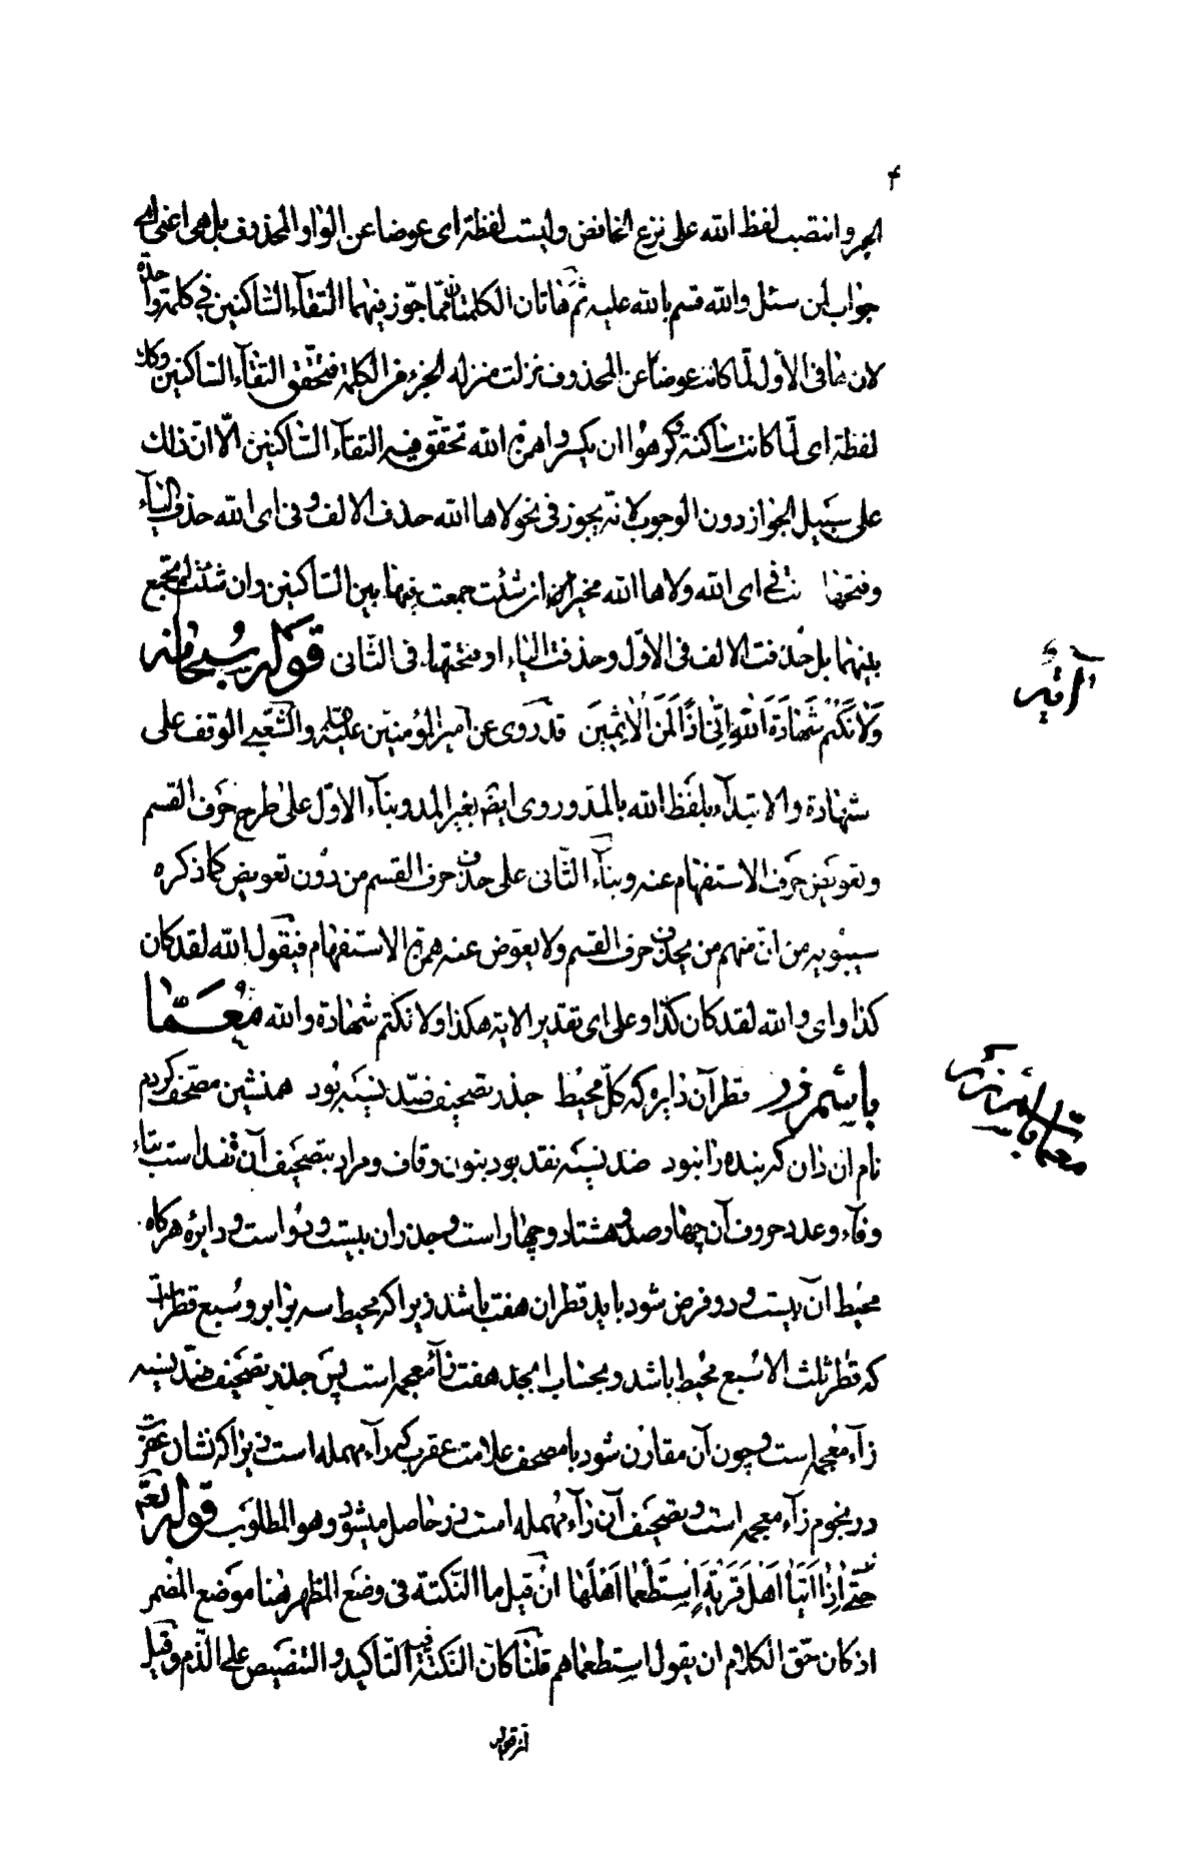 ۴
الجر وانتصب لفظ الله على نزع الخافض وليست لفظة اى عوضا عن الواو المحذوف بل هى اعنى اى
جواب لمن سئل والله قسم بالله عليه ثم هاتان الكلمتان مما جوز فيهما التقاء الساكنين فى كلمة واحدة
لان ها فى الاول لما كانت عوضا عن المحذوف نزلت منزلة الجزء من الكلمة فتحقق التقاء الساكنين وكذا
لفظة اى لما كانت ساكنة وكرهوا ان يكسروا همزة الله تحقق فيه التقاء الساكنين الا ان ذلك
على سبيل الجواز دون الوجوب لانه يجوز فى نحو لاها الله حذف الالف وفى اى الله حذف الياء
وفتحها فى اى الله ولاها الله مخير ان شئت جمعت فيها بين الساكنين وان شئت لم تجمع
بينهما بل حذفت الالف فى الاول وحذفت الياء او فتحتها فى الثانى قوله سبحانه
وَلَا نَكْتُمُ شَهَادَةَ اللهِ اِنَّا اِذًا لَمِنَ الْاٰثِمِينَ قد روى عن امير المؤمنين عليه والشعبى الوقف على
شهادة والابتداء بلفظ الله بالمد وروى ايضا بغير المد وبناء الاول على طرح حرف القسم
وتعويض حرف الاستفهام عنه وبناء الثانى على حذف حرف القسم من دون تعويض كما ذكره
سيبويه من ان منهم من يحذف حرف القسم ولا يعوض عنه همزة الاستفهام فيقول الله لقد كان
كذا واى والله لقد كان كذا وعلى اى تقدير الاية هكذا ولا نكتم شهادة والله مُعَمَّا
باسم فرد قطر آن دايره كه كل محيط جذر تصحيف ضد نسيه بود همنشين مصحف كردم
نام ان دان كه بنده را نبود ضد نسيه نقد بود بنون وقاف ومراد بتصحيف آن تفد است بتاء
وفاء وعدد حروف آن چهار صد و هشتاد و چهار است و جذر ان بيست و دو است و دايره هرگاه
محيط آن بيست و دو فرض شود بايد قطر ان هفت باشد زيرا كه محيط سه برابر و سبع قطر است
كه قطر ثلث الا سبع محيط باشد و بحساب ابجد هفت زاء معجمه است پس جذر تصحيف ضد نسيه
زاء معجمه است و چون آن مقارن شود با مصحف علامت عقرب كه راء مهمله است زيرا كه نشان عقرب
در نجوم زاء معجمه است و تصحيف آن راء مهمله است زر حاصل ميشود و هو المطلوب قوله تعم
حَتّٰى اِذَا اَتَيَا اَهْلَ قَرْيَةٍ اِسْتَطْعَمَا اَهْلَهَا ان قيل ما النكتة فى وضع المظهر هنا موضع المضمر
اذ كان حق الكلام ان يقول استطعماهم قلنا كان النكتة فيه التاكيد والتنصيص على الذم وقيل